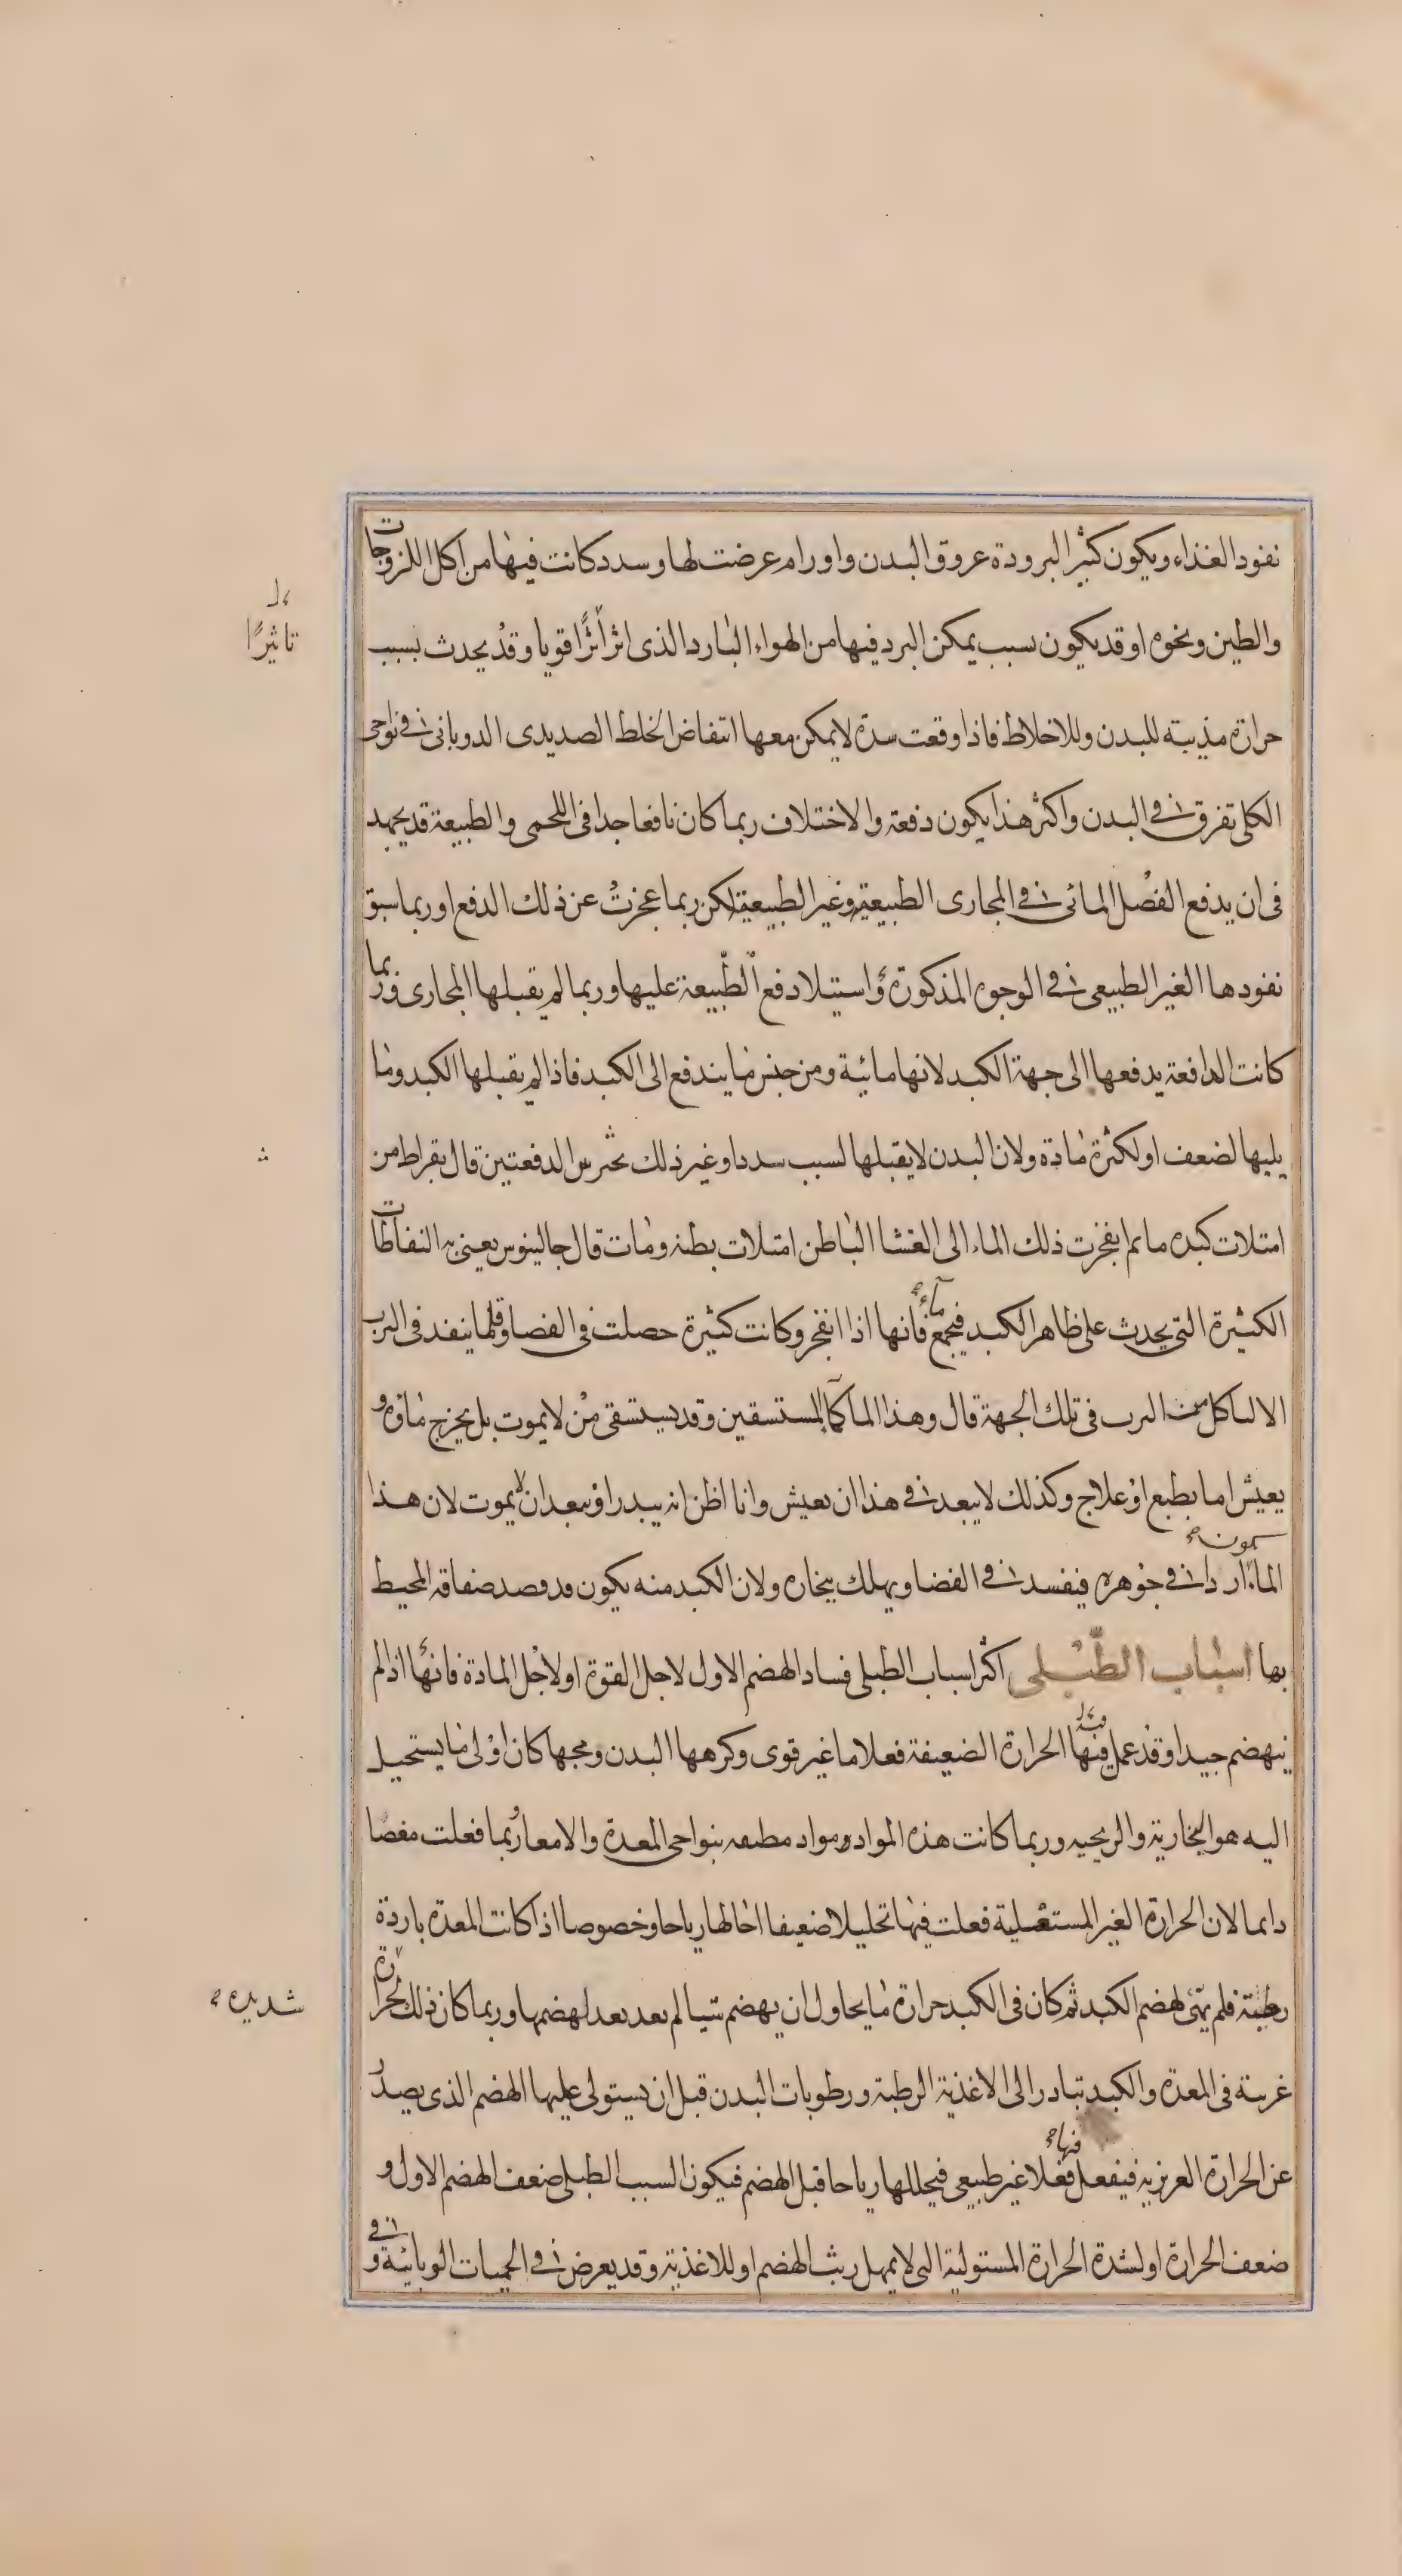 نفود الغذاء ويكون كثير البرودة عروق البدن واورام عرضت لها وسدد كانت فيها من اكل اللزوجات
والطين ونحوه او قد يكون بسبب يمكن البرد فيها من الهواء البارد الذى اثر اثرًا قويا وقد يحدث بسبب
تاثيرًا
حرارة مذيبة للبدن وللاخلاط فاذا وقعت سدة لا يمكن معها انتفاض الخلط الصديدى الدوبانى فى نواحى
الكلى تفرق فى البدن واكثر هذا يكون دفعة والاختلاف ربما كان نافعا جدا فى اللحمى والطبيعة قد يجهد
فى ان يدفع الفضل المائى فى المجارى الطبيعية وغير الطبيعية لكن ربما عجزت عن ذلك الدفع او ربما سبق
نفودها الغير الطبيعى فى الوجوه المذكورة واستيلا دفع الطبيعة عليها وربما لم يقبلها المجارى وربما
كانت الدافعة يدفعها الى جهة الكبد لانها مائية ومن جنس ما يندفع الى الكبد فاذا لم يقبلها الكبد وما
يليها لضعف او لكثرة مادة ولان البدن لا يقبلها لسبب سدد او غير ذلك بين الدفعتين قال بقراط من
امتلات كبده ما ثم انفجرت ذلك الماء الى الغشا الباطن امتلات بطنه ومات قال جالينوس يعنى به النفاطات
الكثيرة التى يحدث على ظاهر الكبد فيجمع ماء فانها اذا انفجر وكانت كثيرة حصلت فى الفضا وقلما ينفد فى الثرب
الا لتاكل من الثرب فى تلك الجهة قال وهذا الما كالمستسقين وقد يستسقى من لا يموت بل يخرج ماؤه و
يعيش اما بطبع او علاج وكذلك لا يبعد فى هذا ان يعيش وانا اظن انه يبدر او يبعد ان لا يموت لان هذا
الماء يكون اردا فى جوهره فيفسد فى الفضا ويهلك بخاره ولان الكبد منه يكون قد فصد صفاقه المحيط
بها اسباب الطبلى اكثر اسباب الطبلى فساد الهضم الاول لاجل القوة او لاجل المادة فانها اذا لم
ينهضم جيدا وقد عمل فيها الحرارة الضعيفة فعلا ما غير قوى وكرهها البدن ومجها كان اولى ما يستحيل
اليه هو البخارية والريحيه وربما كانت هذه المواد مواد بنواحى المعدة والامعا ربما فعلت مغصا
دايما لان الحرارة الغير المستعلية فعلت فيها تحليلا ضعيفا احالها رياحا وخصوصا اذا كانت المعدة باردة
رطبة فلم يهئ لهضم الكبد ثم كان فى الكبد حرارة ما يحاول ان يهضم شيا لم يعد بعد لهضمها وربما كان ذلك لحرارة
شديده
غريبة فى المعدة والكبد تبادر الى الاغذية الرطبة ورطوبات البدن قبل ان يستولى عليها الهضم الذى يصدر
عن الحرارة العزيزيه فيفعل فيها فعلا غير طبيعى فيحللها رياحا قبل الهضم فيكون السبب الطبلى ضعف الهضم الاول و
ضعف الحرارة او لشدة الحرارة المستولية التى لا يمهل ريث الهضم او للاغذية وقد يعرض فى الحميات الوبائية وفى